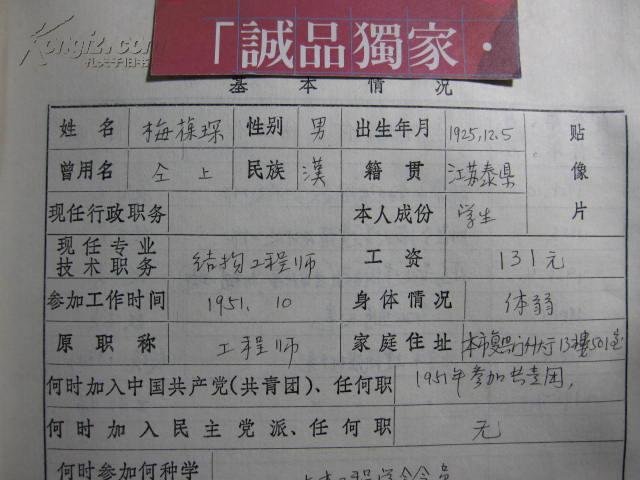 Kongfz.com
孔夫子旧书网
「誠品獨家・
基本情况
姓名 梅葆琛 性别 男 出生年月 1925.12.5 贴
曾用名 仝上 民族 漢 籍贯 江苏泰県 像
现任行政职务 本人成份 学生 片
现任专业技术职务 结构工程师 工资 131元
参加工作时间 1951.10 身体情况 体弱
原职称 工程师 家庭住址 本市復兴门外大厅13樓501室
何时加入中国共产党(共青团)、任何职 1951年参加共青团,
何时加入民主党派、任何职 无
何时参加何种学 工程学会会员